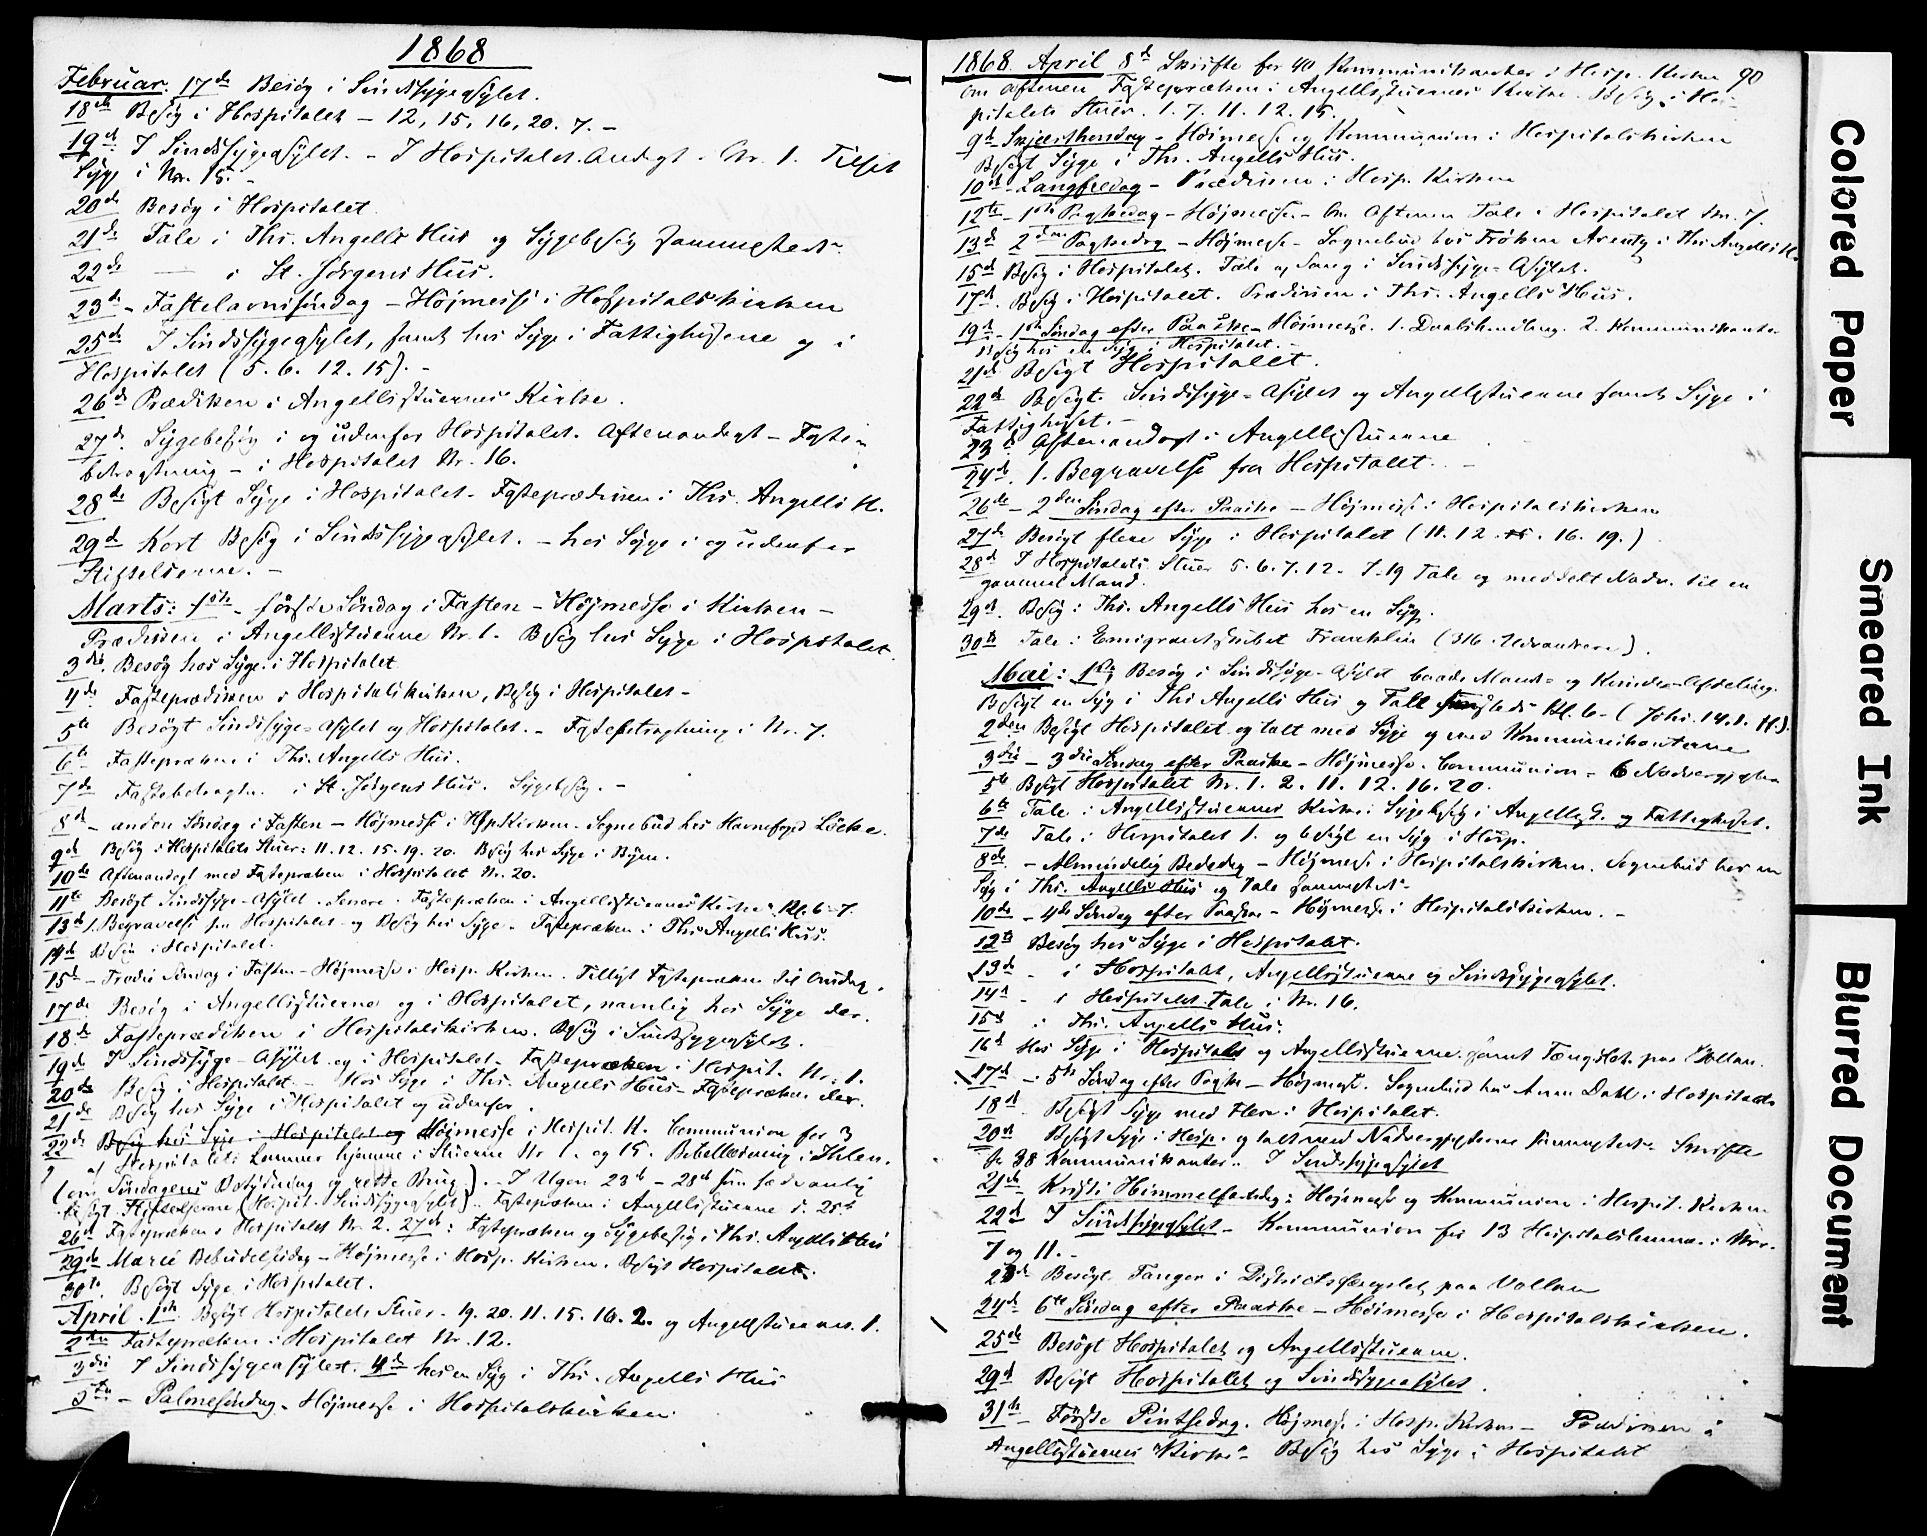 1868
Februar. 17de Besøg i Sindssygeasylet.
18de Besøg i Hospitalet – 12, 15, 16, 20. 7. –
19de I Sindssygeasylet. – I Hospitalet. Andagt. Nr. 1. Tilset
Syge i Nr. 15. –
20de Besøg i Hospitalet
21de Tale i Ths. Angells Hus og Sygebesøg sammesteds.
22de — i St. Jørgens Hus.
23de – Fastelavnssøndag – Højmesse i Hospitalskirken
25de I Sindssygeasylet, samt hos Syge i Fattighusene og i
Hospitalet (5. 6. 12. 15). –
26de Prædiken i Angellsstuernes Kirke.
27de Sygebesøg i og udenfor Hospitalet. Aftenandagt – Faste-
betragtning – i Hospitalet Nr. 16.
28de Besøgt Syge i Hospitalet. Fasteprædiken i Ths. Angells H.
29de Kort Besøg i Sindssygeasylet. – hos Syge i og udenfor
Stiftelserne. –
Marts: 1ste – første Søndag i Fasten – Højmesse i Kirken –
Prædiken i Angellsstuerne Nr. 1. Besøg hos Syge i Hospitalet.
3die. Besøg hos Syge i Hospitalet
4de Fasteprædiken i Hospitalskirken, Besøg i Hospitalet –
5te Besøgt Sindssyge-Asylet og Hospitalet. – Fastebetragtning i Nr. 7.
6te Fastepræken i Ths. Angells Hus.
7de Fastebetragtn. i St. Jørgens Hus. Sygebesøg. –
8de – anden Søndag i Fasten – Højmesse i Hsp. Kirken. Sognebud hos Havnefoged Löcke.
9de Besøg i Hospitalets Stuer: 11. 12. 15. 19. 20. Besøg hos Syge i Byen.
10de Aftenandagt med Fastepræken i Hospitalet Nr. 20.
11te Besøgt Sindssyge-Asylet. Senere Fastepræken i Angellsstuernes Kirke Kl. 6–7.
13de 1. Begravelse fra Hospitalet og Besøg hos Syge. Fastepræken i Ths. Angells Hus.
14de Besøg i Hospitalet.
15de – Tredie Søndag i Fasten – Højmesse i Hosp. Kirken. Tillyst Fastepræken til Onsdag.
17de Besøg i Angellsstuerne og i Hospitalet, namlig hos Syge der.
18de Fasteprædiken i Hospitalskirken. Besøg i Sindssygeasylet.
19de I Sindssyge-Asylet og i Hospitalet. Fastepræken i Hospit. Nr. 1.
20de Besøg i Hospitalet – Hos Syge i Ths. Angells Hus – Fastepræken der.
21de Besøg hos Syge i Hospitalet og udenfor.
22de Besøg hos Syge i Hospitalet og Højmesse i Hospit. K. Communion for 3
af Hospitalets Lemmer hjemme i Stuerne Nr 1. og 15. Bibellæsning i Ihlen.
(om Søndagens Betydning og rette Brug). – I Ugen 23de – 28de som sædvanlig
besøgt Stiftelserne (Hospit. Sindssygeasylet). Fastepræken i Angellsstuerne d. 25de
26de Fastepræken i Hospitalet Nr. 2. 27de: Fastepræken og Sygebesøg i Ths. Angells Hus
29de Mariæ Bebudelsesdag – Højmesse i Hosp. Kirken. Besøgt Hospitalet.
30te. Besøgt Syge i Hospitalet.
April. 1ste Besøgt Hospitalets Stuer. 19. 20. 11. 15. 16. 2. og Angellsstuernes 1.
2den Fastepræken i Hospitalet Nr. 12.
3die I Sindssygeasylet. 4de hos en Syg i Ths. Angells Hus
5te – Palmesøndag – Højmesse i Hospitalskirken.
1868. April 8de Skrifte for 40 Kommunikanter i Hosp. Kirken 90
om Aftenen Fastepræken i Angellsstuernes Kirke. Besøg i Hos-
pitalets Stuer. 1. 7. 11. 12. 15.
9de Skjærthorsdag – Højmesse og Kommunion i Hospitalskirken
Besøgt Syge i Ths. Angells Hus.
10de – Langfredag – Prædiken i Hosp. Kirken
12te – 1ste Paaskedag – Højmesse – Om Aftenen Tale i Hospitalet Nr. 7.
13de 2den Paaskedag – Højmesse – Sognebud hos Frøken Arentz i Ths Angells H.
15de Besøg i Hospitalet. Tale og Sang i Sindssyge-Asylet.
17de. Besøg i Hospitalet. Prædiken i Ths. Angells Hus.
19de – 1ste Søndag efter Paaske – Højmesse. 1. Daabshandling. 2. Kommunikanter
Besøg hos en Syg i Hospitalet. –
21de Besøgt Hospitalet.
22de Besøgt Sindssyge-Asylet og Angellsstuerne samt Syge i
Fattighuset. –
23de Aftenandagt i Angellsstuerne
24de. 1. Begravelse fra Hospitalet. –
26de – 2den Søndag efter Paaske – Højmesse i Hospitalskirken
27de Besøgt flere Syge i Hospitalet (11. 12. 15. 16. 19.)
28de I Hospitalets Stuer 5. 6. 7. 12. I 19 Tale og meddelt Nadv. til en
gammel Mand.
29de. Besøg i Ths. Angells Hus hos en Syg.
30te Tale i Emigrantskibet Franklin (316 Udvandrere).
Mai: 1ste Besøg i Sindssyge-Asylet baade Mands- og Kvinde-Afdeling.
Besøgt en Syg i Ths Angells Hus og Tale sammesteds Kl. 6 – (Johs. 14. 1. ff.).
2den Besøgt Hospitalet og talt med Syge og med Kommunikanterne
3die – 3die Søndag efter Paaske – Højmesse. Communion – 6 Nadvergjæster
5te Besøgt Hospitalet Nr. 1. 2. 11. 12. 16. 20.
6te Tale i Angellsstuernes Kirke. Sygebesøg i Angellsst. og Fattighuset.
7de Tale i Hospitalet 1. og besøgt en Syg i Hosp.
8de – Almindelig Bededag – Højmesse i Hospitalskirken. Sognebud hos en
Syg i Ths. Angells Hus og Tale sammesteds –
10de – 4de Søndag efter Paaske – Højmesse i Hospitalskirken. –
12te Besøg hos Syge i Hospitalet.
13de – i Hospitalet, Angellsstuerne og Sindssygeasylet.
14de – i Hospitalet. Tale i Nr. 16.
15de i Ths. Angells Hus.
16de Hos Syge i Hospitalet og Angellsstuerne. samt Fængslet paa Vollan.
17de – 5te Søndag efter Paaske – Højmesse. Sognebud hos Anne Dahl i Hospitalet
18de Besøgt Syge med Flere i Hospitalet.
20de Besøgt Syge i Hosp. og talt med Nadvergjæsterne sammesteds. Skrifte
for 38 Kommunikanter. I Sindssygeasylet
21de Kristi Himmelfartsdag: Højmesse og Kommunion i Hospit. Kirken
22de I Sindssygeasylet – Kommunion for 13 Hospitalslemmer i Nr.
7 og 11. –
23de Besøgt Fanger i Districtsfængslet paa Vollan
24de 6te Søndag efter Paaske – Højmesse i Hospitalskirken.
25de Besøgt Hospitalet og Angellsstuerne.
29de Besøgt Hospitalet og Sindssygeasylet.
31te – Første Pintsedag. Højmesse i Hosp. Kirken – Prædiken i
Angellsstuernes Kirke – Besøg hos Syge i Hospitalet
Colored Paper
Smeared Ink
Blurred Document